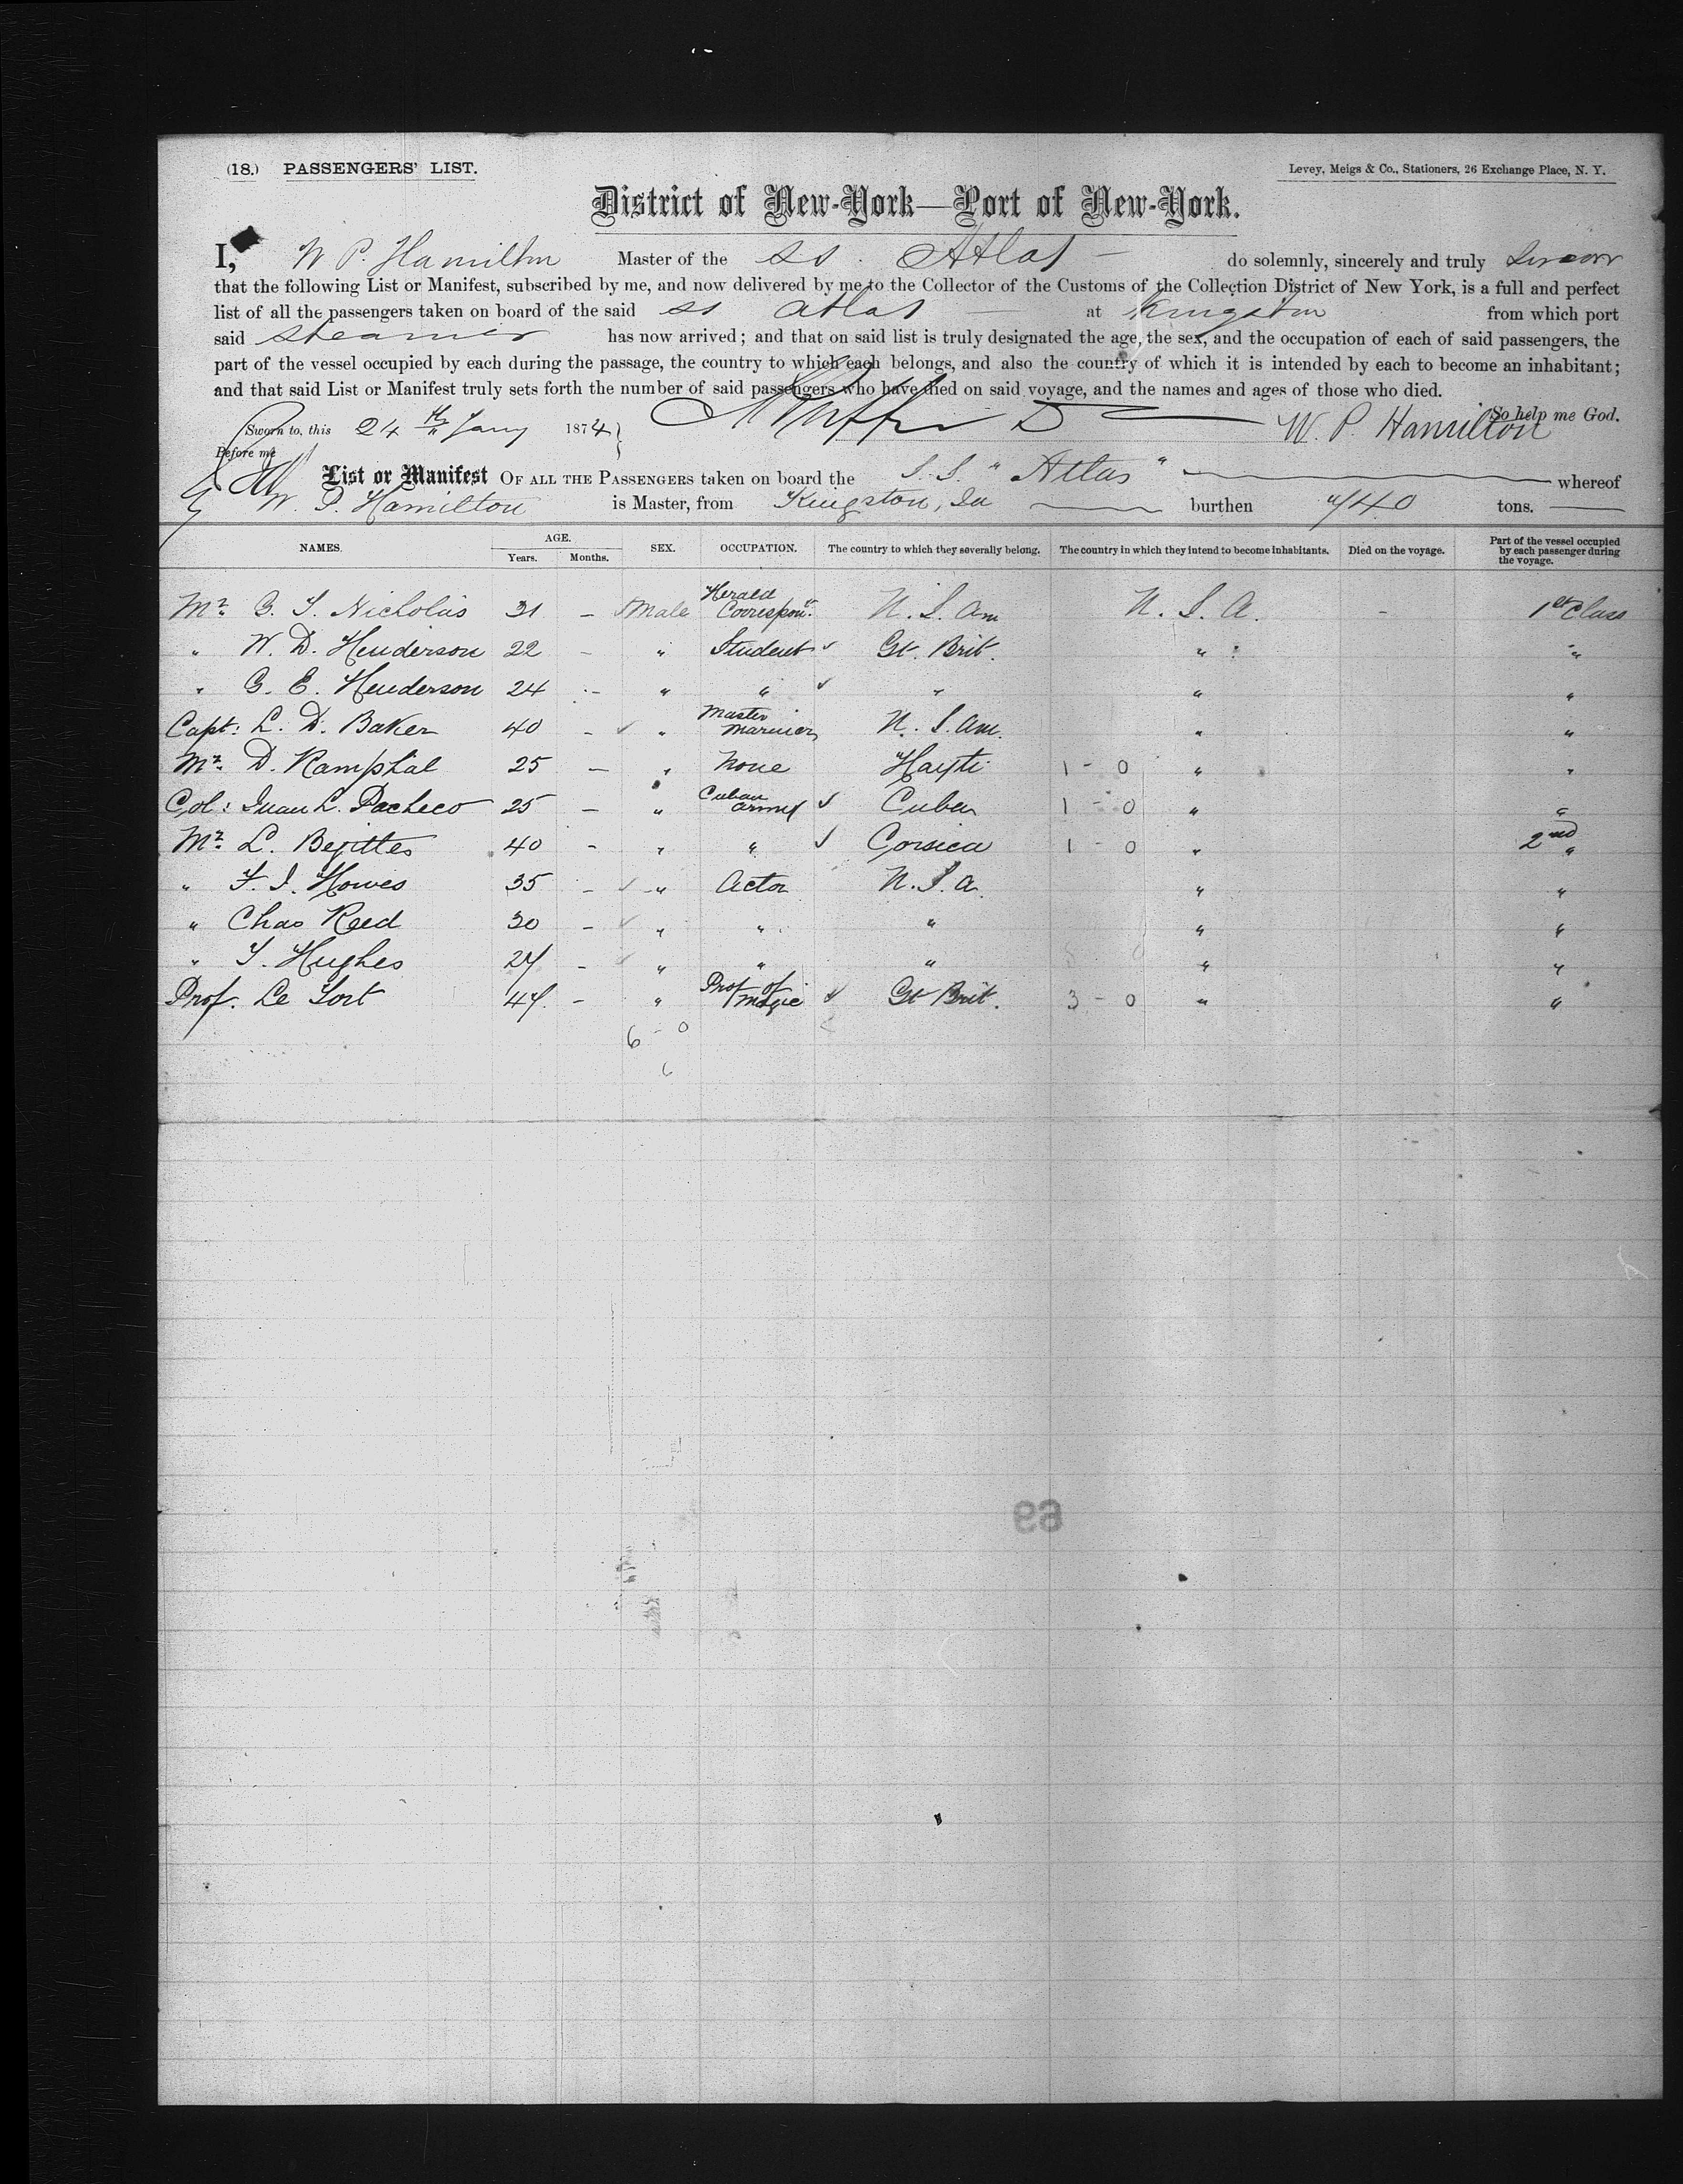 (18.) PASSENGERS' LIST.
Levey, Meigs & Co., Stationers, 26 Exchange Place, N. Y.
District of New-York—Port of New-York.
I, W P. Hamilton Master of the ss. Atlas — do solemnly, sincerely and truly swear
that the following List or Manifest, subscribed by me, and now delivered by me to the Collector of the Customs of the Collection District of New York, is a full and perfect
list of all the passengers taken on board of the said ss Atlas — at Kingston from which port
said steamer has now arrived; and that on said list is truly designated the age, the sex, and the occupation of each of said passengers, the
part of the vessel occupied by each during the passage, the country to which each belongs, and also the country of which it is intended by each to become an inhabitant;
and that said List or Manifest truly sets forth the number of said passengers who have died on said voyage, and the names and ages of those who died.
So help me God.
Sworn to, this 24th Jany 1874 W. P. Hamilton
Before me
List or Manifest OF ALL THE PASSENGERS taken on board the S. S. "Atlas" whereof
W. P. Hamilton is Master, from Kingston, Ja burthen tons.
NAMES. AGE. Years. Months. SEX. OCCUPATION. The country to which they severally belong. The country in which they intend to become inhabitants. Died on the voyage. Part of the vessel occupied by each passenger during the voyage.
Mr. G. T. Nicholas 31 — Male Herald Correspont. U. S. Am U. S. A. — 1st Class
" W. D. Henderson 22 — " Student Gt. Brit. " "
" G. E. Henderson 24 — " " " " "
Capt: L. D. Baker 40 — " Master Mariner U. S. Am. " "
Mr. D. Ramphal 25 — " None Hayti 1 - 0 " "
Col: Juan L. Pacheco 25 — " Cuban army Cuba 1 - 0 " "
Mr. L. 40 — " " Corsica 1 - 0 " 2nd "
" F. I. Howes 35 — " Actor U. S. A. " "
" Chas Reed 30 — " " " " "
" T. Hughes 27 — " " " " "
Prof. Le Tort 47 — " Prof of Magic Gt Brit. 3 - 0 " "
6 - 0
6